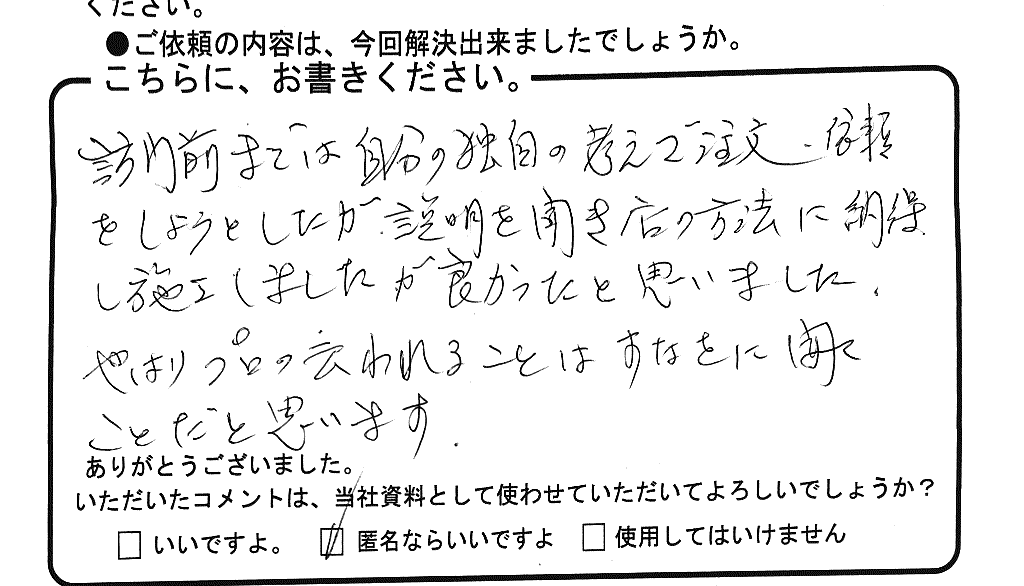 ください。
●ご依頼の内容は、今回解決出来ましたでしょうか。
こちらに、お書きください。
訪り前までは自分の独自の考えで注文、依頼
をしようとしたが説明を聞き店の方法に納得
し施工しましたが良かったと思いました。
やはりプロの云われることはすなをに聞く
ことだと思います.
ありがとうございました。
いただいたコメントは、当社資料として使わせていただいてよろしいでしょうか?
□ いいですよ。 ☑ 匿名ならいいですよ □ 使用してはいけません